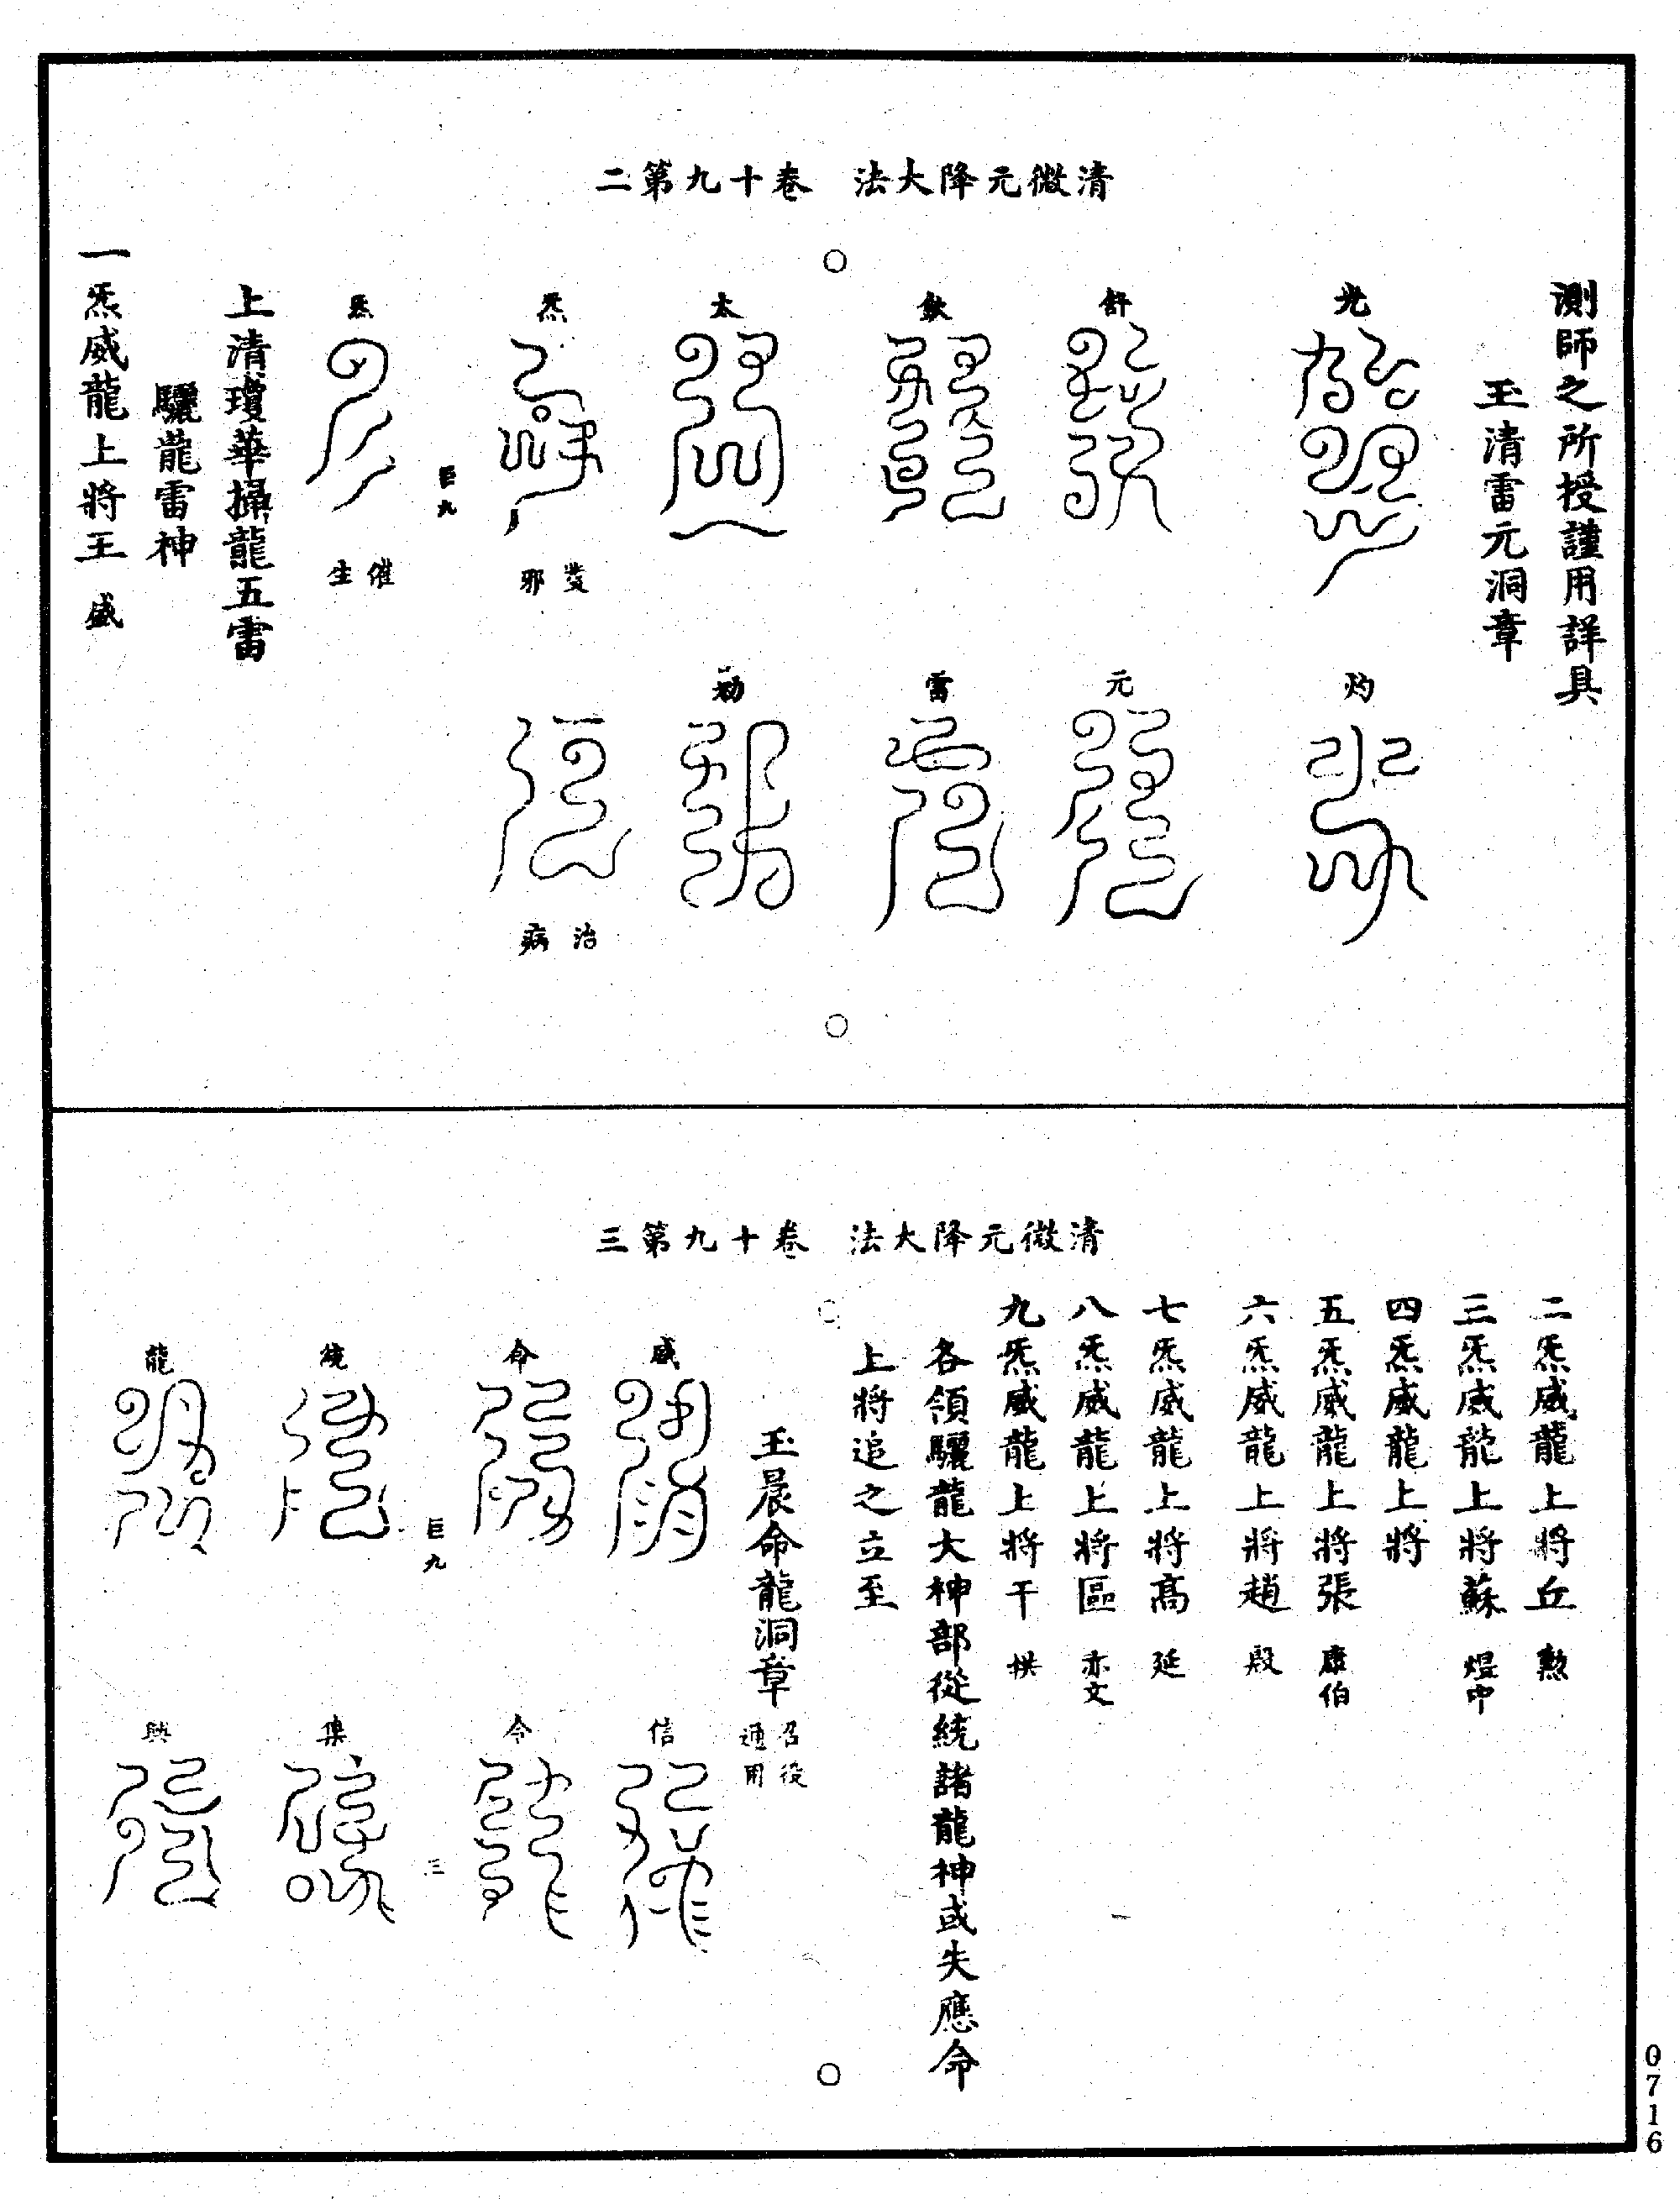 清微元降大法　卷十九第二
測師之所授謹用詳具
玉清雷元洞章
光
灼
舒
元
歘
雷
太
劫
炁
治病
炁
催生
巨九
上清瓊華操龍五雷
驪龍雷神
一炁威龍上將王　盛
清微元降大法　卷十九第三
二炁威龍上將丘　勲
三炁威龍上將蘇　焜中
四炁威龍上將
五炁威龍上將張　康伯
六炁威龍上將趙　殷
七炁威龍上將高　延
八炁威龍上將區　亦文
九炁威龍上將干　拱
各領驪龍大神部從統諸龍神或失應命
上將追之立至
玉晨命龍洞章　召役通用
威
信
命
令
巨九
三
統
集
龍
興
0716